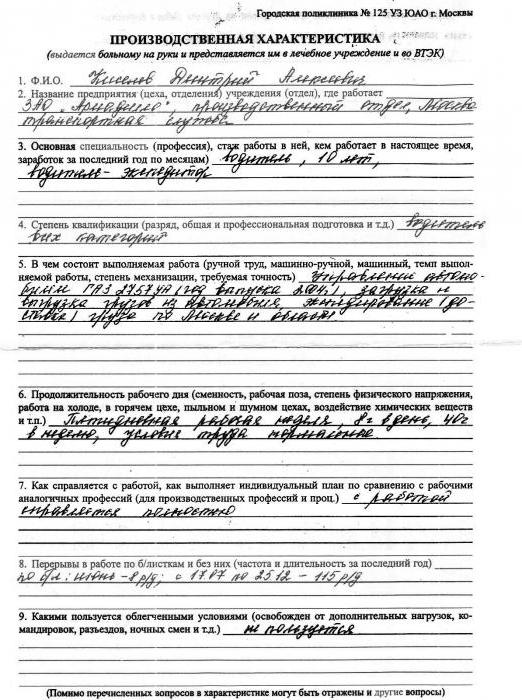 Городская поликлиника № 125 УЗ ЮАО г. Москвы
ПРОИЗВОДСТВЕННАЯ ХАРАКТЕРИСТИКА
(выдается больному на руки и представляется им в лечебное учреждение и во ВТЭК)
1. Ф.И.О. Киселев Дмитрий Алексевич
2. Название предприятия (цеха, отделения) учреждения (отдел), где работает
ЗАО „ производственный отдел, Москва
транспортная служба
3. Основная специальность (профессия), стаж работы в ней, кем работает в настоящее время,
заработок за последний год по месяцам) водитель, 10 лет,
водитель-экспедитор
4. Степень квалификации (разряд, общая и профессиональная подготовка и т.д.) водитель
всех категорий
5. В чем состоит выполняемая работа (ручной труд, машинно-ручной, машинный, темп выпол-
няемой работы, степень механизации, требуемая точность) Управление автомо-
билем ГАЗ 2757УА (год выпуска 2004), загрузка и
выгрузка грузов из автомобиля, экспедирование (до-
ставка) груза по Москве и области
6. Продолжительность рабочего дня (сменность, рабочая поза, степень физического напряжения,
работа на холоде, в горячем цехе, пыльном и шумном цехах, воздействие химических веществ
и т.п.) Пятидневная рабочая неделя, 8ч в день, 40ч
в неделю, условия труда нормальные
7. Как справляется с работой, как выполняет индивидуальный план по сравнению с рабочими
аналогичных профессий (для производственных профессий и проц.) с работой
справляется полностью
8. Перерывы в работе по б/листкам и без них (частота и длительность за последний год)
по б/л: июнь - 8 р/д; с 17.07 по 25.12 - 115 р/д
9. Какими пользуется облегченными условиями (освобожден от дополнительных нагрузок, ко-
мандировок, разъездов, ночных смен и т.д.) не пользуется
(Помимо перечисленных вопросов в характеристике могут быть отражены и другие вопросы)